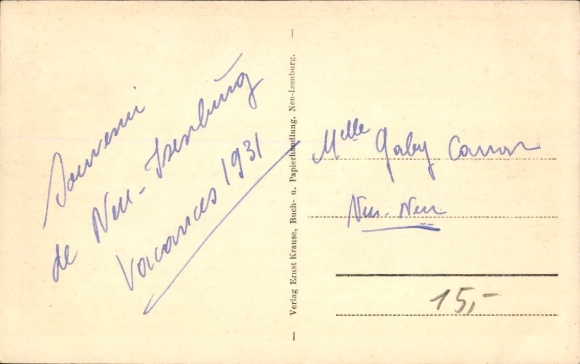 Souvenir
de Neu-Isenburg
Vacances 1931
Verlag Ernst Krause, Buch- u. Papierhandlung, Neu-Isenburg.
Mlle Gaby
15,-